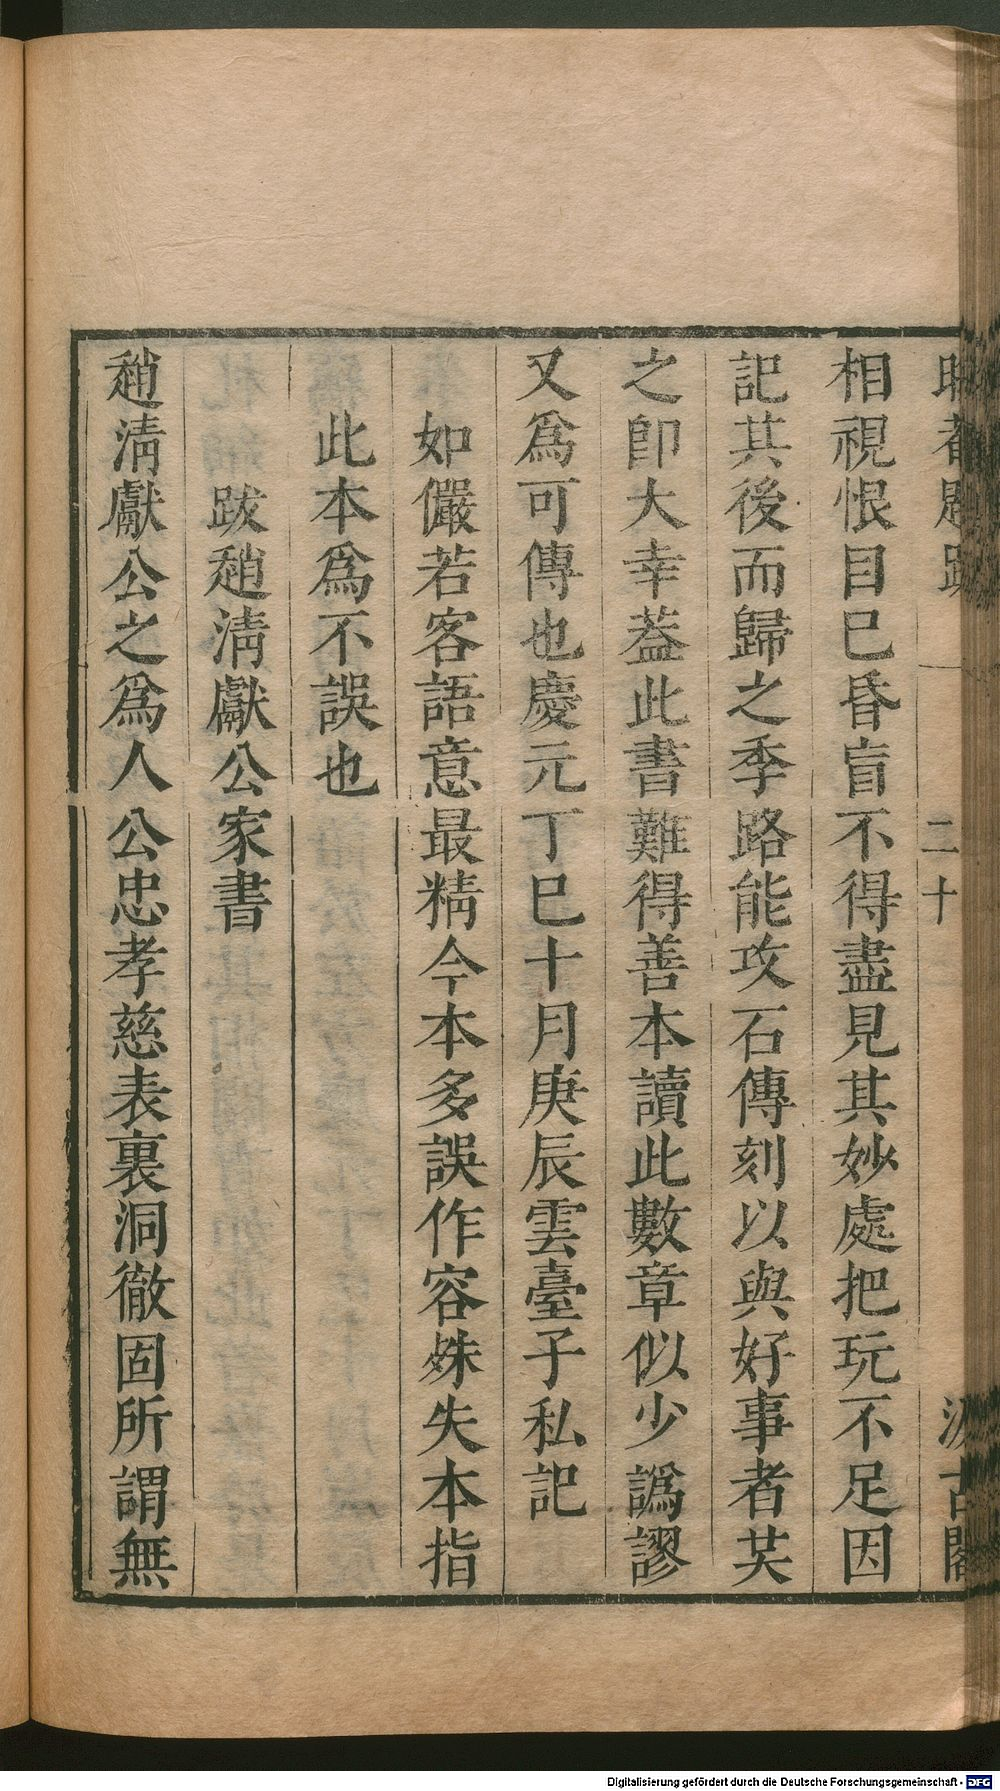 晦菴題跋 二十 汲古閣
相視恨目已昏盲不得盡見其妙處把玩不足因
記其後而歸之季路能攻石傳刻以與好事者共
之卽大幸葢此書難得善本讀此數章似少譌謬
又爲可傳也慶元丁巳十月庚辰雲臺子私記
如儼若客語意最精今本多誤作容殊失本指
此本爲不誤也
跋趙清獻公家書
趙清獻公之爲人公忠孝慈表裏洞徹固所謂無
Digitalisierung gefördert durch die Deutsche Forschungsgemeinschaft - DFG